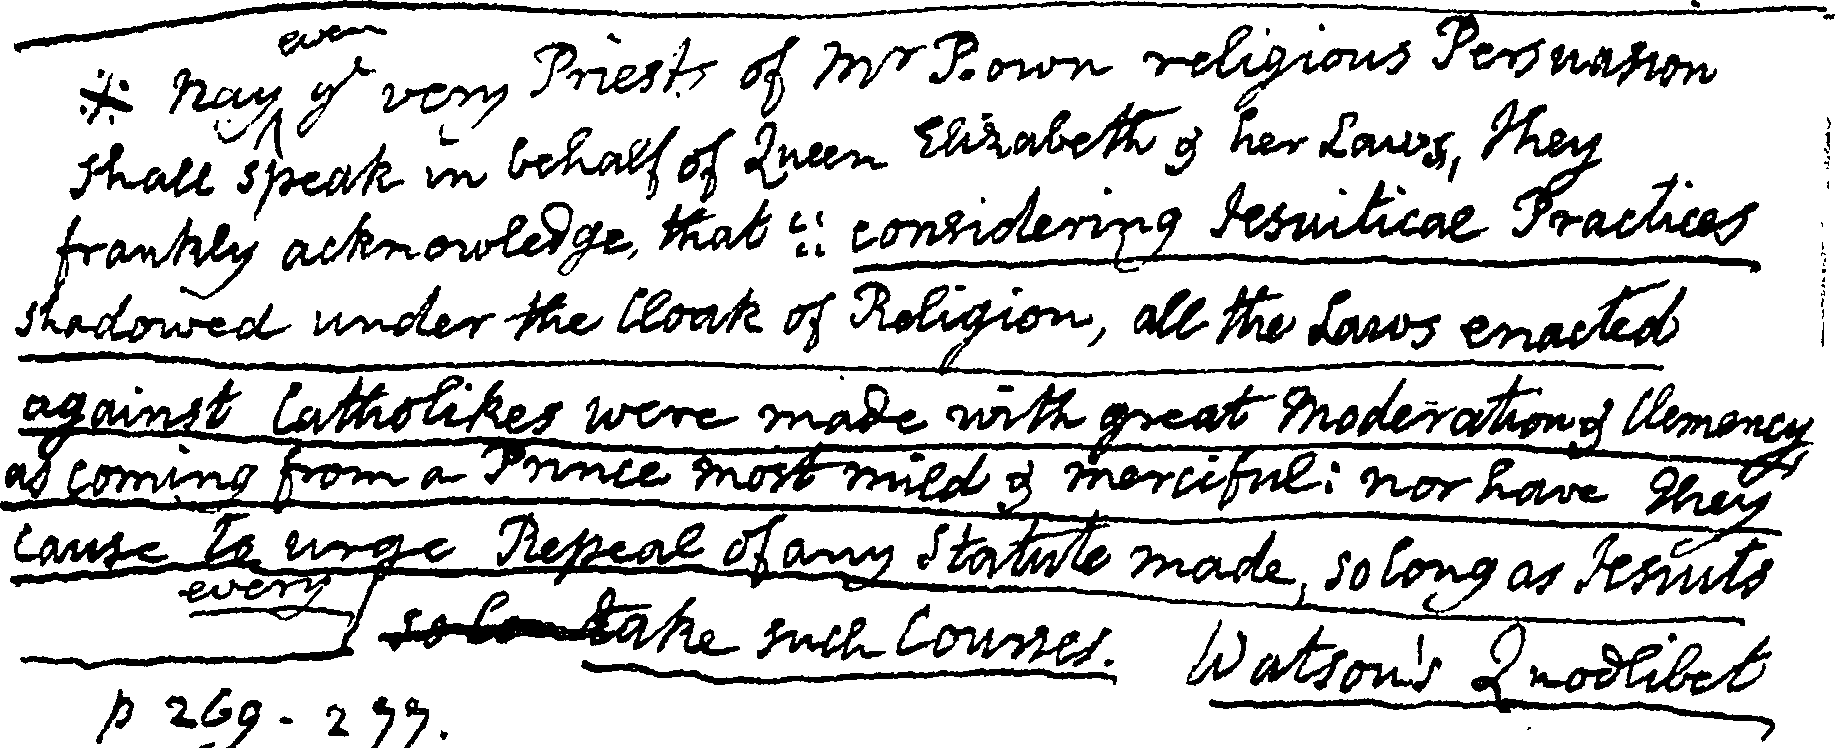 ※ Nay even yᵉ very Priests of Mr P. own religious Persuasion
shall speak in behalf of Queen Elizabeth & her Laws, They
frankly acknowledge, that "considering Jesuitical Practices
shadowed under the Cloak of Religion, all the Laws enacted
against Catholikes were made with great Moderation & Clemency
as coming from a Prince most mild & merciful: nor have they
cause to urge Repeal of any Statute made, so long as Jesuits
every
so lon take such Courses. Watson's Quodlibet
p 269-277.